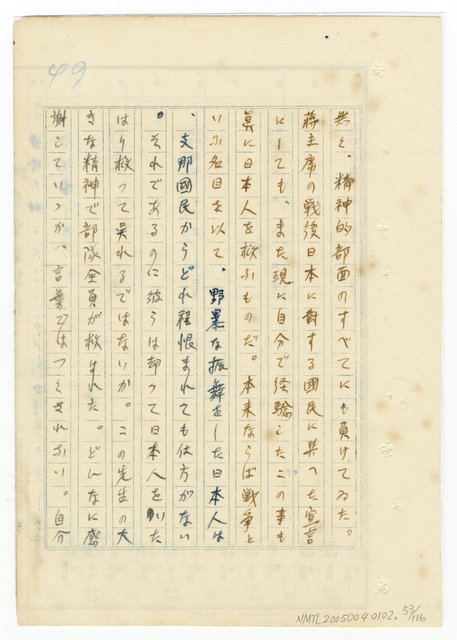 49
然と、精神的部面のすべてにも負けてゐた。
蒋主席の戦後日本に對する國民に與へた宣言
にしても、また現に自分で経驗したこの事も
真に日本人を救ふものだ。本来ならば戦争と
いふ名目を以て、野暴な振舞をした日本人は
、支那國民からどれ程恨まれても仕方がない
。それであるのに彼らは却つて日本人をいた
はり救つて呉れるではないか。この先生の大
きな精神で部隊全員が救はれた。どんなに感
謝していゝか、言葉ではつくされない。自分
NMTL20050040102, 53/116